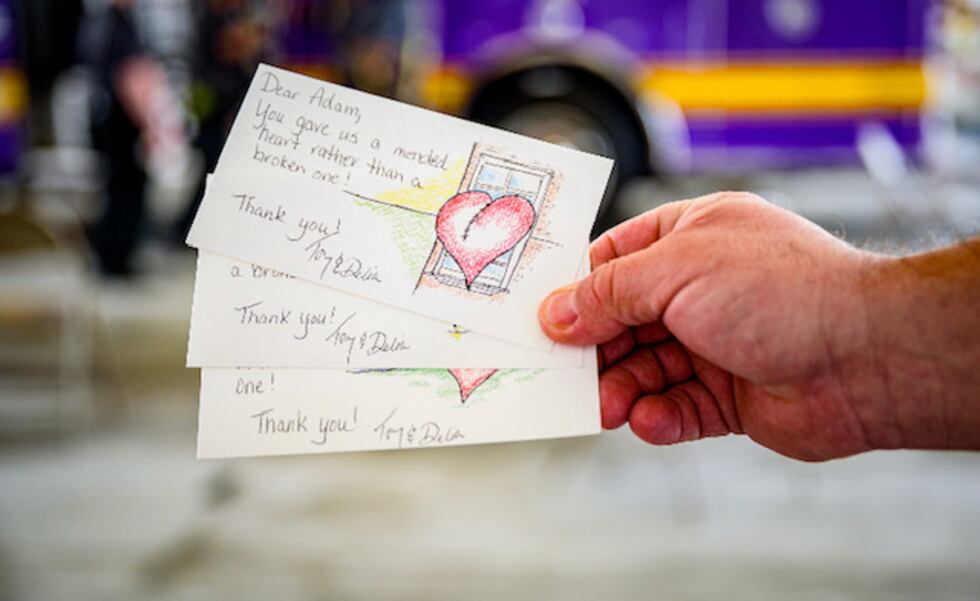 Dear Adam,
You gave us a mended
heart rather than a
broken one!
Thank you!
& Delia
Thank you!
& Delia
one!
Thank you!
& Delia